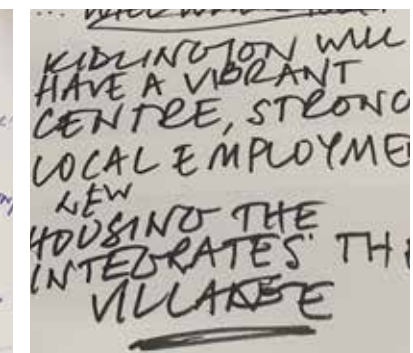 KIDLINGTON WILL
HAVE A VIBRANT
CENTRE, STRONG
LOCAL EMPLOYME
NEW
HOUSING THE
INTEGRATES THE
VILLAGE